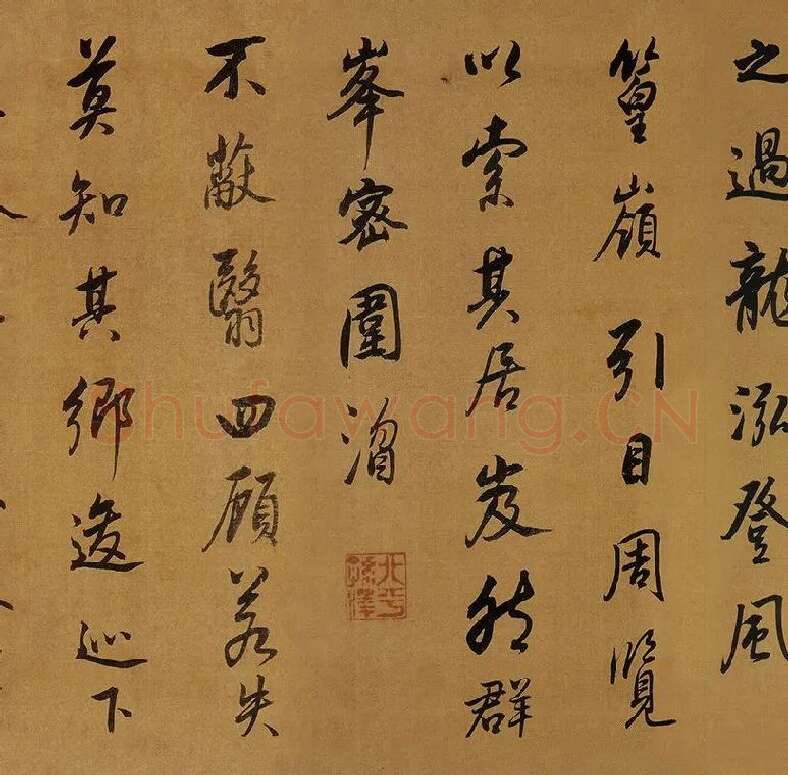 之過龍泓登風
篁嶺引目周覽
以索其居岌然群
峯密圍
不蔽翳四顧若失
莫知其鄉逡巡下
北平
孫澤
Shufawang.CN